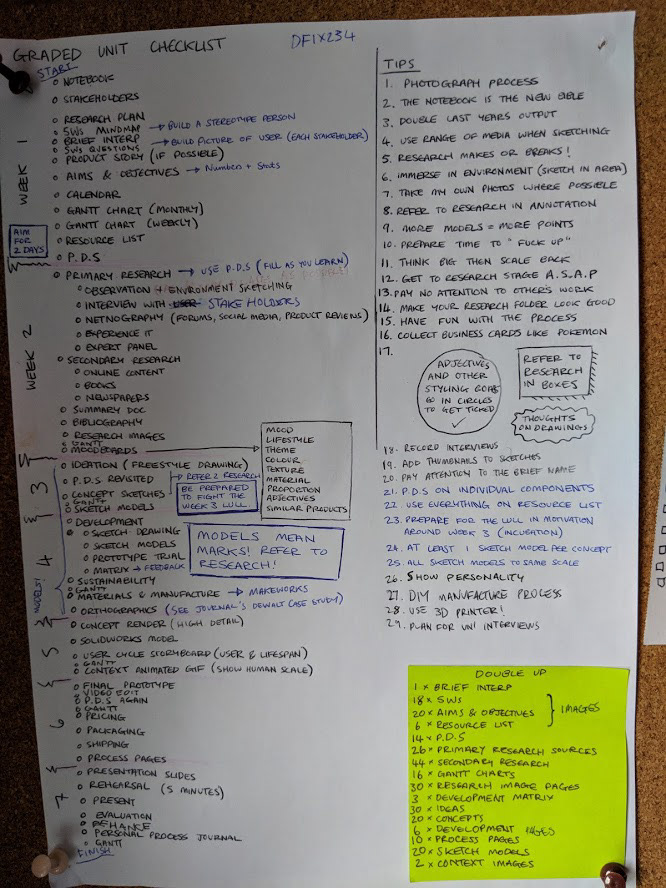 GRADED UNIT CHECKLIST
DFIX234
START
NOTEBOOK
STAKEHOLDERS
RESEARCH PLAN
5WS MINDMAP → BUILD A STEREOTYPE PERSON
BRIEF INTERP → BUILD PICTURE OF USER (EACH STAKEHOLDER)
5WS QUESTIONS
PRODUCT STORY (IF POSSIBLE)
AIMS & OBJECTIVES → Numbers + Stats
CALENDAR
GANTT CHART (MONTHLY)
GANTT CHART (WEEKLY)
RESOURCE LIST
P.D.S
WEEK 1
AIM
FOR
2 DAYS
PRIMARY RESEARCH → USE P.D.S (FILL AS YOU LEARN)
OBSERVATION + ENVIRONMENT SKETCHING
INTERVIEW WITH USER STAKE HOLDERS
NETNOGRAPHY (FORUMS, SOCIAL MEDIA, PRODUCT REVIEWS)
EXPERIENCE IT
EXPERT PANEL
SECONDARY RESEARCH
ONLINE CONTENT
BOOKS
NEWSPAPERS
SUMMARY DOC
BIBLIOGRAPHY
RESEARCH IMAGES
GANTT
MOODBOARDS
WEEK 2
MOOD
LIFESTYLE
THEME
COLOUR
TEXTURE
MATERIAL
PROPORTION
ADJECTIVES
SIMILAR PRODUCTS
IDEATION (FREESTYLE DRAWING)
P.D.S REVISITED
CONCEPT SKETCHES
GANTT
SKETCH MODELS
3
REFER 2 RESEARCH
BE PREPARED
TO FIGHT THE
WEEK 3 LULL
DEVELOPMENT
SKETCH DRAWING
SKETCH MODELS
PROTOTYPE TRIAL
MATRIX → FEEDBACK
SUSTAINABILITY
GANTT
MATERIALS & MANUFACTURE → MAKEWORKS
ORTHOGRAPHICS (SEE JOURNAL'S DEWALT CASE STUDY)
4
MODELS!
MODELS MEAN
MARKS! REFER TO
RESEARCH!
CONCEPT RENDER (HIGH DETAIL)
SOLIDWORKS MODEL
USER CYCLE STORYBOARD (USER & LIFESPAN)
GANTT
CONTEXT ANIMATED GIF (SHOW HUMAN SCALE)
5
FINAL PROTOTYPE
VIDEO EDIT
P.D.S AGAIN
GANTT
PRICING
PACKAGING
SHIPPING
PROCESS PAGES
6
PRESENTATION SLIDES
REHEARSAL (5 MINUTES)
PRESENT
EVALUATION
BEHANCE
PERSONAL PROCESS JOURNAL
GANTT
7
FINISH
TIPS
1. PHOTOGRAPH PROCESS
2. THE NOTEBOOK IS THE NEW BIBLE
3. DOUBLE LAST YEARS OUTPUT
4. USE RANGE OF MEDIA WHEN SKETCHING
5. RESEARCH MAKES OR BREAKS!
6. IMMERSE IN ENVIRONMENT (SKETCH IN AREA)
7. TAKE MY OWN PHOTOS WHERE POSSIBLE
8. REFER TO RESEARCH IN ANNOTATION
9. MORE MODELS = MORE POINTS
10. PREPARE TIME TO "FUCK UP"
11. THINK BIG THEN SCALE BACK
12. GET TO RESEARCH STAGE A.S.A.P
13. PAY NO ATTENTION TO OTHERS WORK
14. MAKE YOUR RESEARCH FOLDER LOOK GOOD
15. HAVE FUN WITH THE PROCESS
16. COLLECT BUSINESS CARDS LIKE POKEMON
17.
ADJECTIVES
AND OTHER
STYLING GOALS
GO IN CIRCLES
TO GET TICKED
REFER TO
RESEARCH
IN BOXES
THOUGHTS
ON DRAWINGS
18. RECORD INTERVIEWS
19. ADD THUMBNAILS TO SKETCHES
20. PAY ATTENTION TO THE BRIEF NAME
21. P.D.S ON INDIVIDUAL COMPONENTS
22. USE EVERYTHING ON RESOURCE LIST
23. PREPARE FOR THE LULL IN MOTIVATION
AROUND WEEK 3 (INCUBATION)
24. AT LEAST 1 SKETCH MODEL PER CONCEPT
25. ALL SKETCH MODELS TO SAME SCALE
26. SHOW PERSONALITY
27. DIY MANUFACTURE PROCESS
28. USE 3D PRINTER!
29. PLAN FOR UNI INTERVIEWS
DOUBLE UP
1 × BRIEF INTERP
18 × 5WS
20 × AIMS & OBJECTIVES
6 × RESOURCE LIST
IMAGES
14 × P.D.S
26 × PRIMARY RESEARCH SOURCES
44 × SECONDARY RESEARCH
16 × GANTT CHARTS
30 × RESEARCH IMAGE PAGES
3 × DEVELOPMENT MATRIX
30 × IDEAS
20 × CONCEPTS
6 × DEVELOPMENT PAGES
10 × PROCESS PAGES
20 × SKETCH MODELS
2 × CONTEXT IMAGES